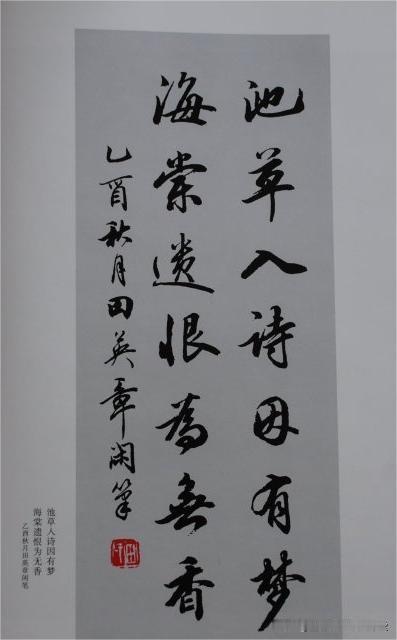 池草入诗因有梦
海棠遗恨為無香
乙酉秋月田英章闲筆
池草入诗因有梦
海棠遗恨为无香
乙酉秋月田英章闲笔